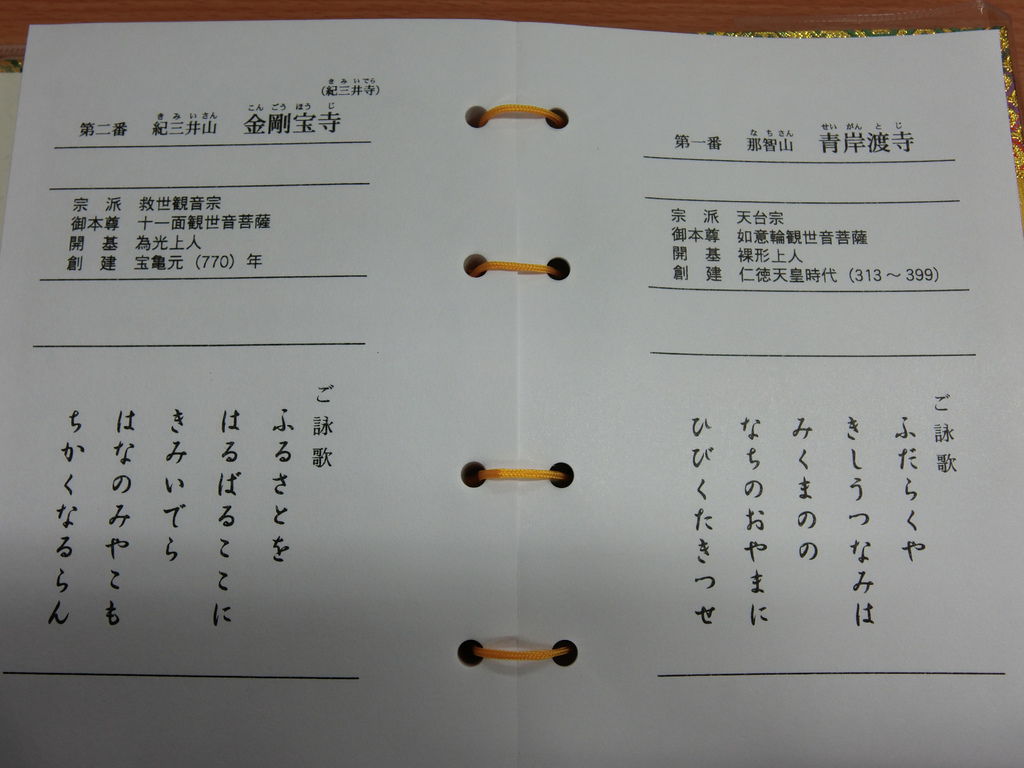 第一番 那智山 青岸渡寺
なちさん せいがんとじ
宗派 天台宗
御本尊 如意輪観世音菩薩
開基 裸形上人
創建 仁徳天皇時代(313~399)
ご詠歌
ふだらくや
きしうつなみは
みくまのの
なちのおやまに
ひびくたきつせ
(紀三井寺)
きみいでら
第二番 紀三井山 金剛宝寺
きみいさん こんごうほうじ
宗派 救世観音宗
御本尊 十一面観世音菩薩
開基 為光上人
創建 宝亀元(770)年
ご詠歌
ふるさとを
はるばるここに
きみいでら
はなのみやこも
ちかくなるらん